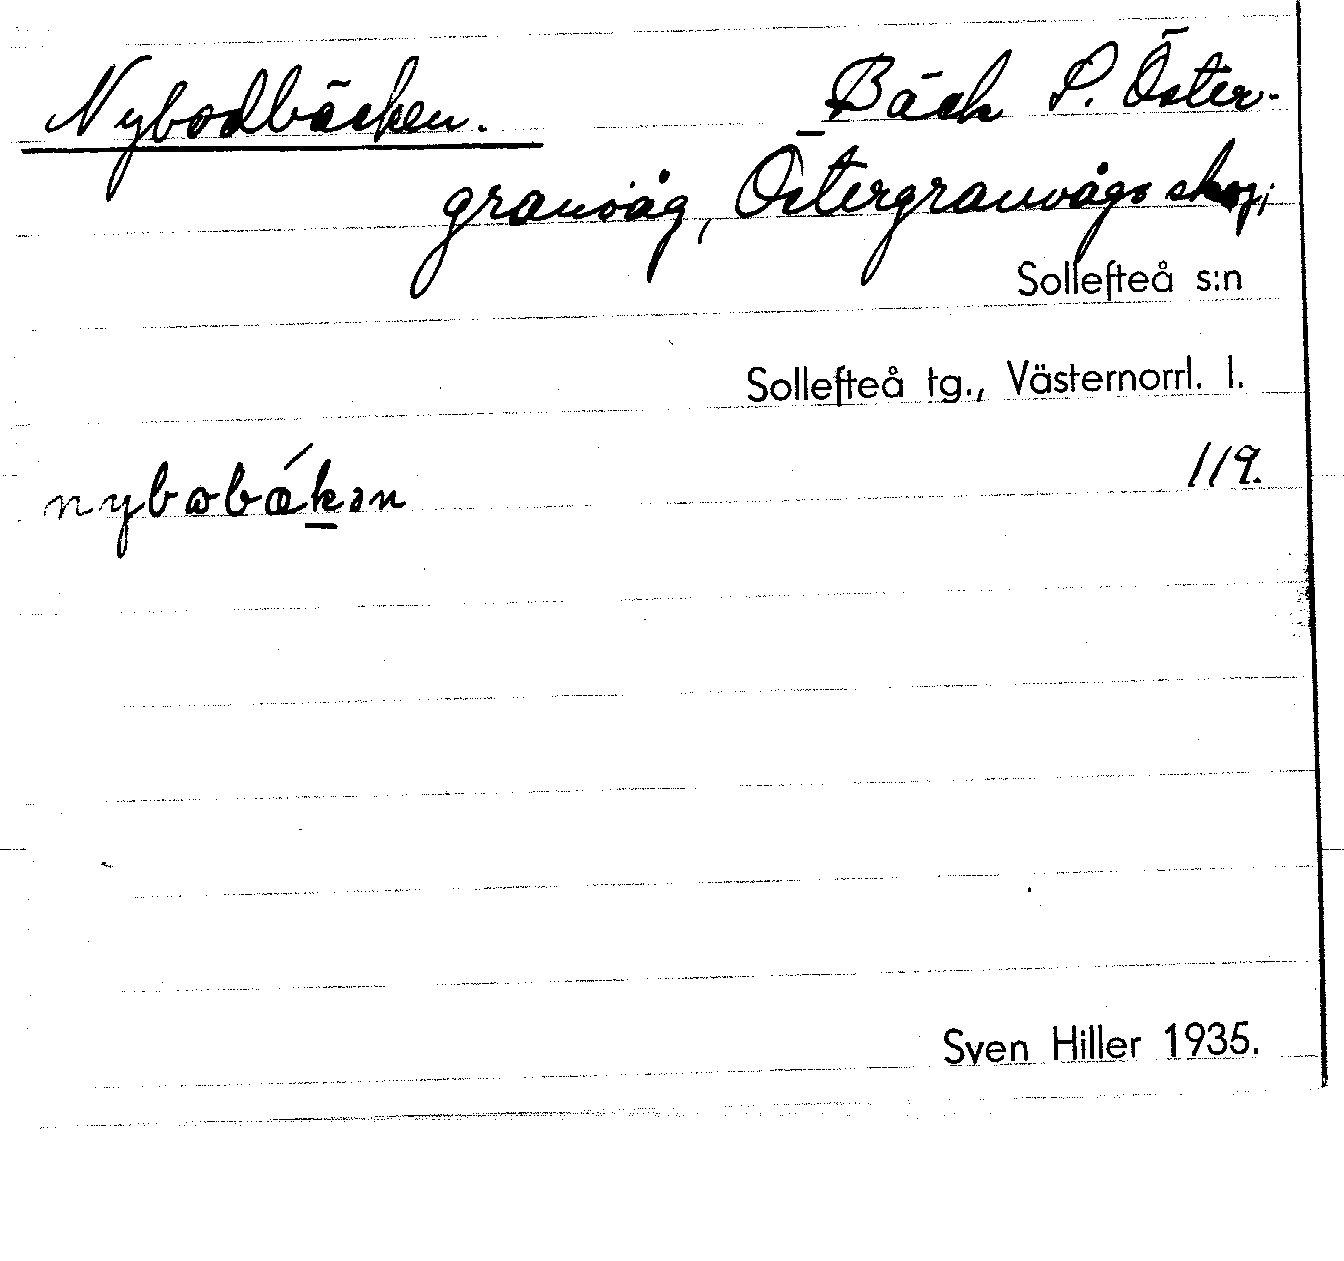 Nybodbäcken. Bäck S. Öster-
granvåg, Östergranvågs skog,
Sollefteå s:n
Sollefteå tg., Västernorrl. l.
nybobǽkən 119.
Sven Hiller 1935.